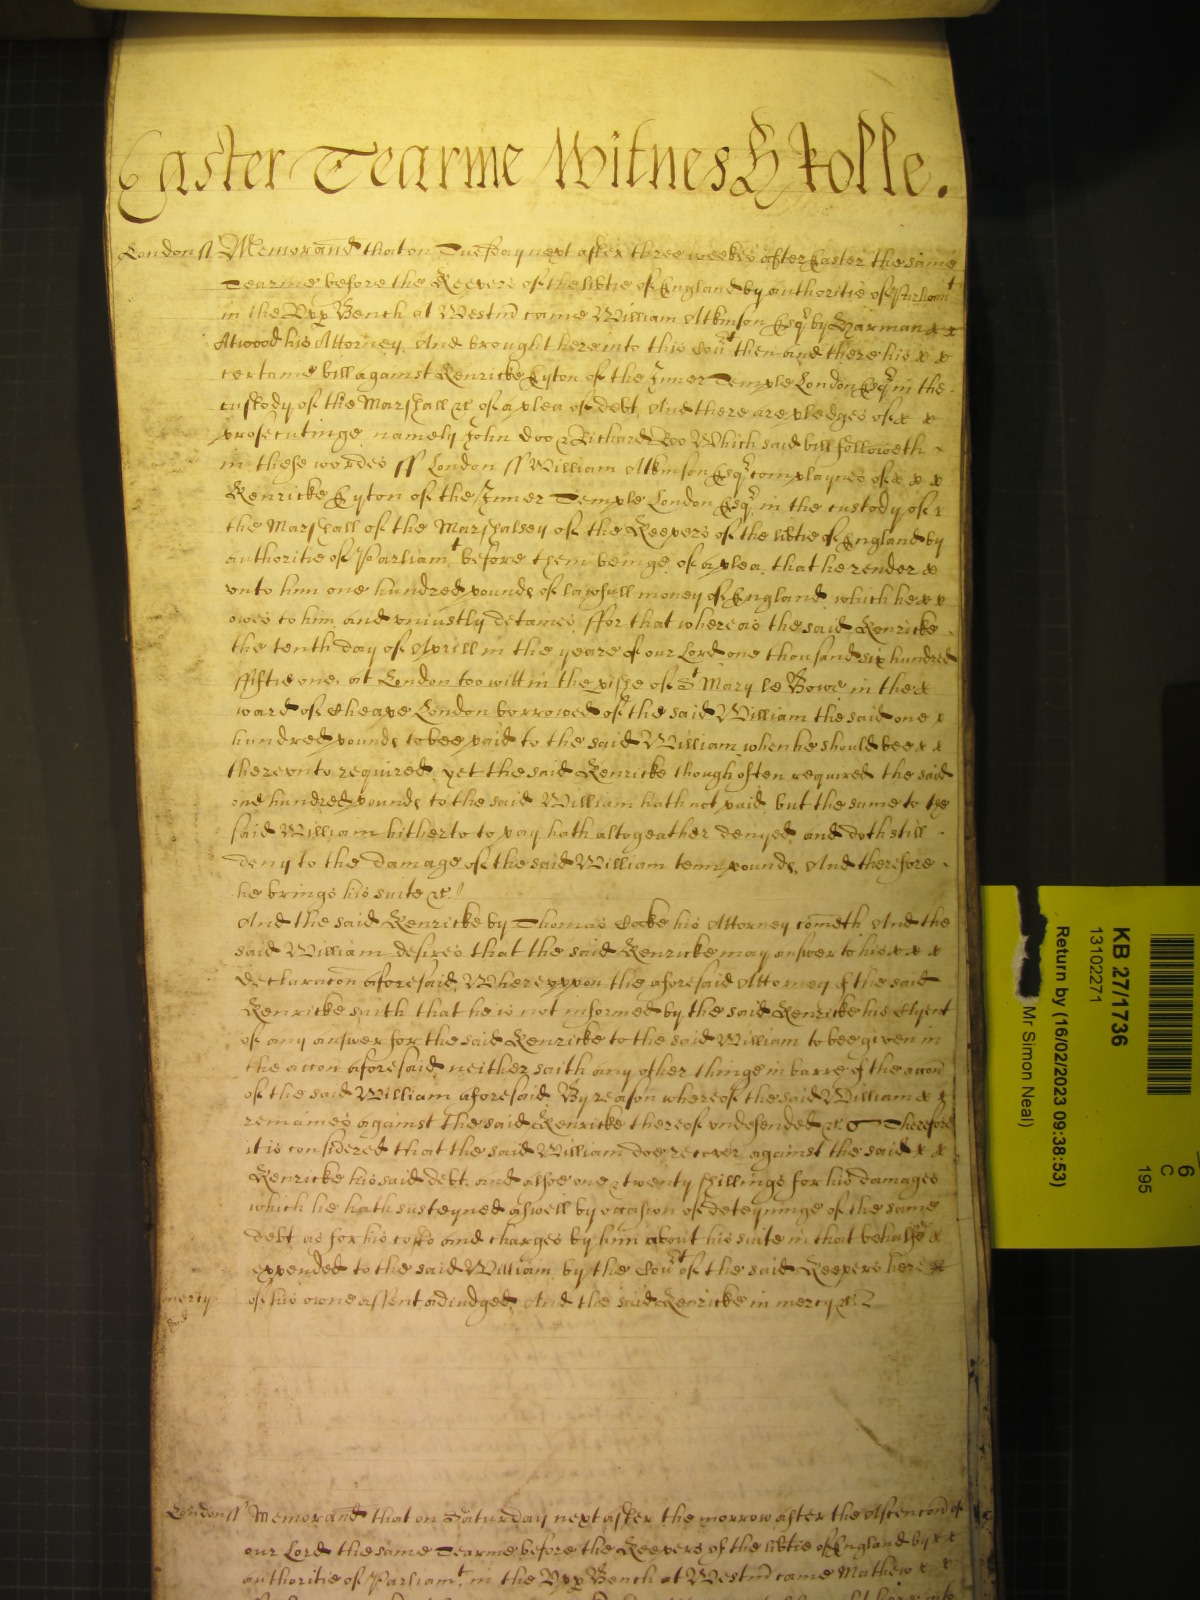 Easter Tearme Witnes H Rolle.
London ss Memorand that on Tuesday next after three weekes after Easter the same
Tearme before the Keepers of the lib͠tie of England by authoritie of Parliamt
in the Upp Bench at Westm̃ came William Atkinson Esqr by Harman x x
Atwood his Attorney. And brought here into this Court then and there his x x
certaine bill against Kenricke Eyton of the Inner Temple London Esqr in the
custody of the Marshall &c of a plea of debt. And there are pledges of x x
prosecutinge, namely John Doo & Richard Roo Which said bill followeth
in these wordes ss London ss William Atkinson Esqr complaynes of x x x
Kenricke Eyton of the Inner Temple London Esqr in the custody of x
the Marshall of the Marshalsey of the Keepers of the lib͠tie of England by
authoritie of Parliamt before them beinge, of a plea, that he render x
vnto him one hundred pounds of lawfull money of England, which he x x
owes to him, and vniustly detaines. ffor that whereas the said Kenricke
the tenth day of Aprill in the yeare of our Lord one thousand six hundred
ffiftie one, at London too witt in the p̱ishe of St Mary le Bowe in the x
ward of Cheape London borrowed of the said William the said one x
hundred pounds to bee paid to the said William, when he should bee x x
therevnto required, yet the said Kenricke though often required the said
one hundred pounds to the said William hath not paid, but the same to the
said William hitherto to pay hath altogeather denyed, and doth still
deny to the damage of the said William tenn pounds, And therefore
he brings his suite &c.
And the said Kenricke by Thomas Cocke his Attorney com̃eth And the
said William desires that the said Kenricke may answer to his x x x
declaraco͠n aforesaid, Where vppon the aforesaid Attorney of the said
Kenricke saith that he is not informed by the said Kenricke his Clyent
of any answer for the said Kenricke to the said William to bee given in
the acco͠n aforesaid, neither saith any other thinge in barre of the acco͠n
of the said William aforesaid. By reason whereof the said William x x
remaines against the said Kenricke thereof vndefended &c. Therefore
it is considered that the said William doe recover against the said x x
Kenricke his said debt, and alsoe one & twenty shillings for his damages
which he hath susteyned aswell by occasion of deteyninge of the same
debt as for his costs and charges by him about his suite in that behalfe x
expended to the said William by the Court of the said Keepers here x
mercy of his owne assent adiudged, And the said Kenricke in mercy &c.
London ss Memorand that on Saturday next after the morrow after the Ascenco͠n of
our Lord the same Tearme before the Keepers of the lib͠tie of England by x x
authoritie of Parliamt, in the Upp Bench at Westm̃ came Mathew x x
KB 27/1736
13102271
Return by (16/02/2023 09:38:53)
Mr Simon Neal)
6
C
195